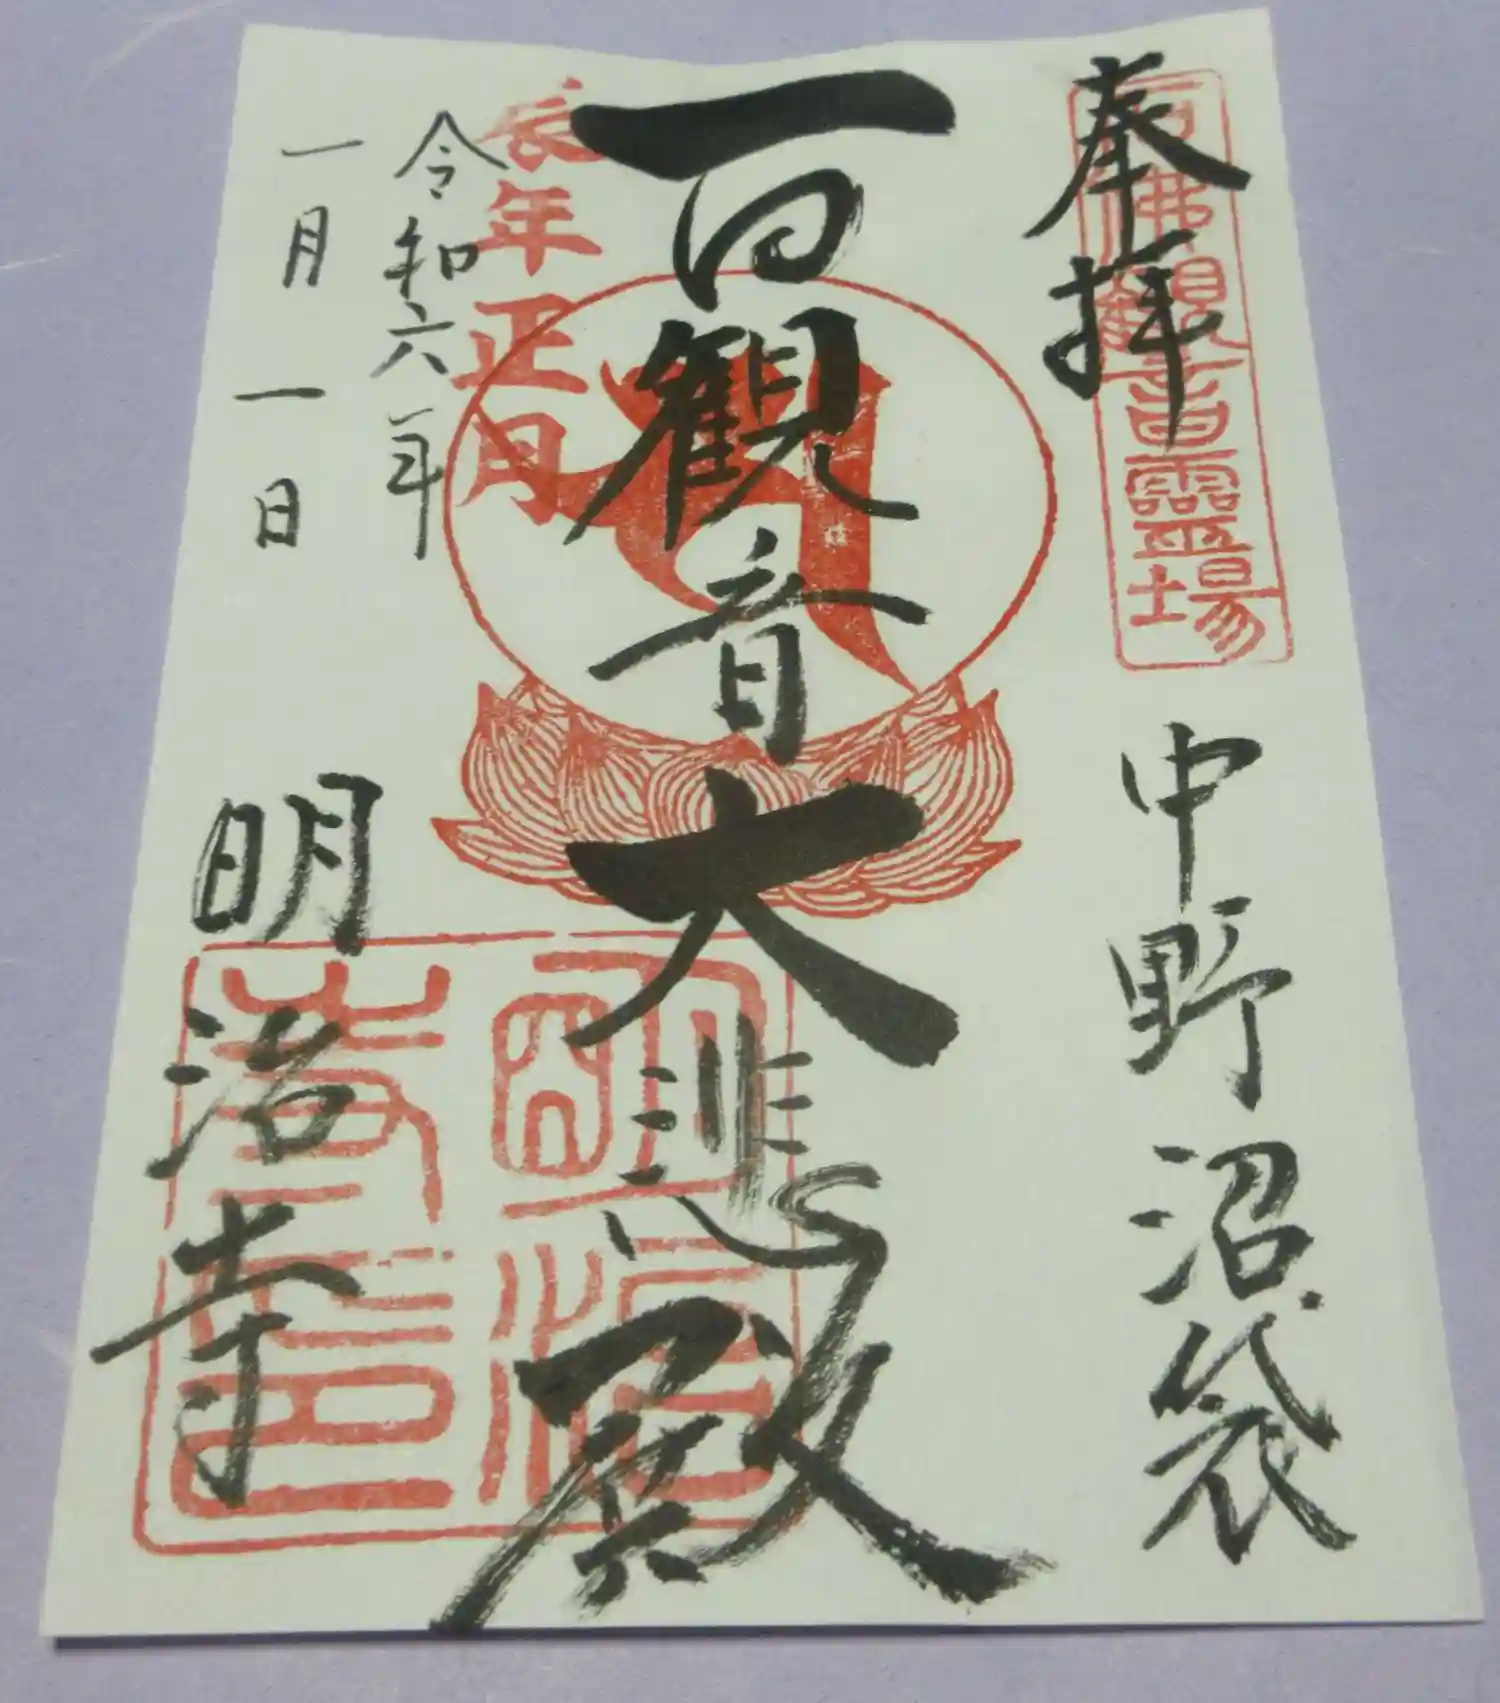 奉拝
百佛観音霊場
中野沼袋
百観音大悲殿
辰年正月
令和六年
一月一日
明治寺
明治寺印